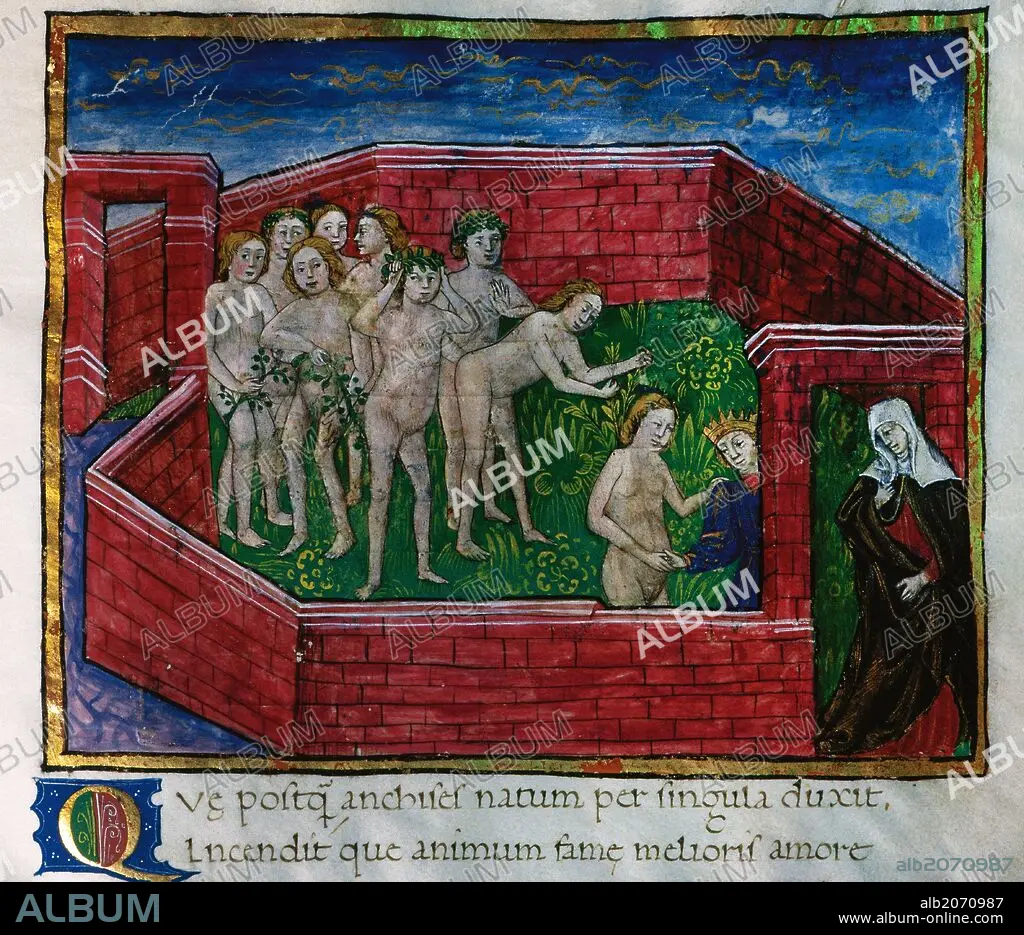 QVę postq̃ anchises natum per singula duxit.
Incendit que animum famę melioris amore
alb2070987
ALBUM
alb2070987
www.album-online.com